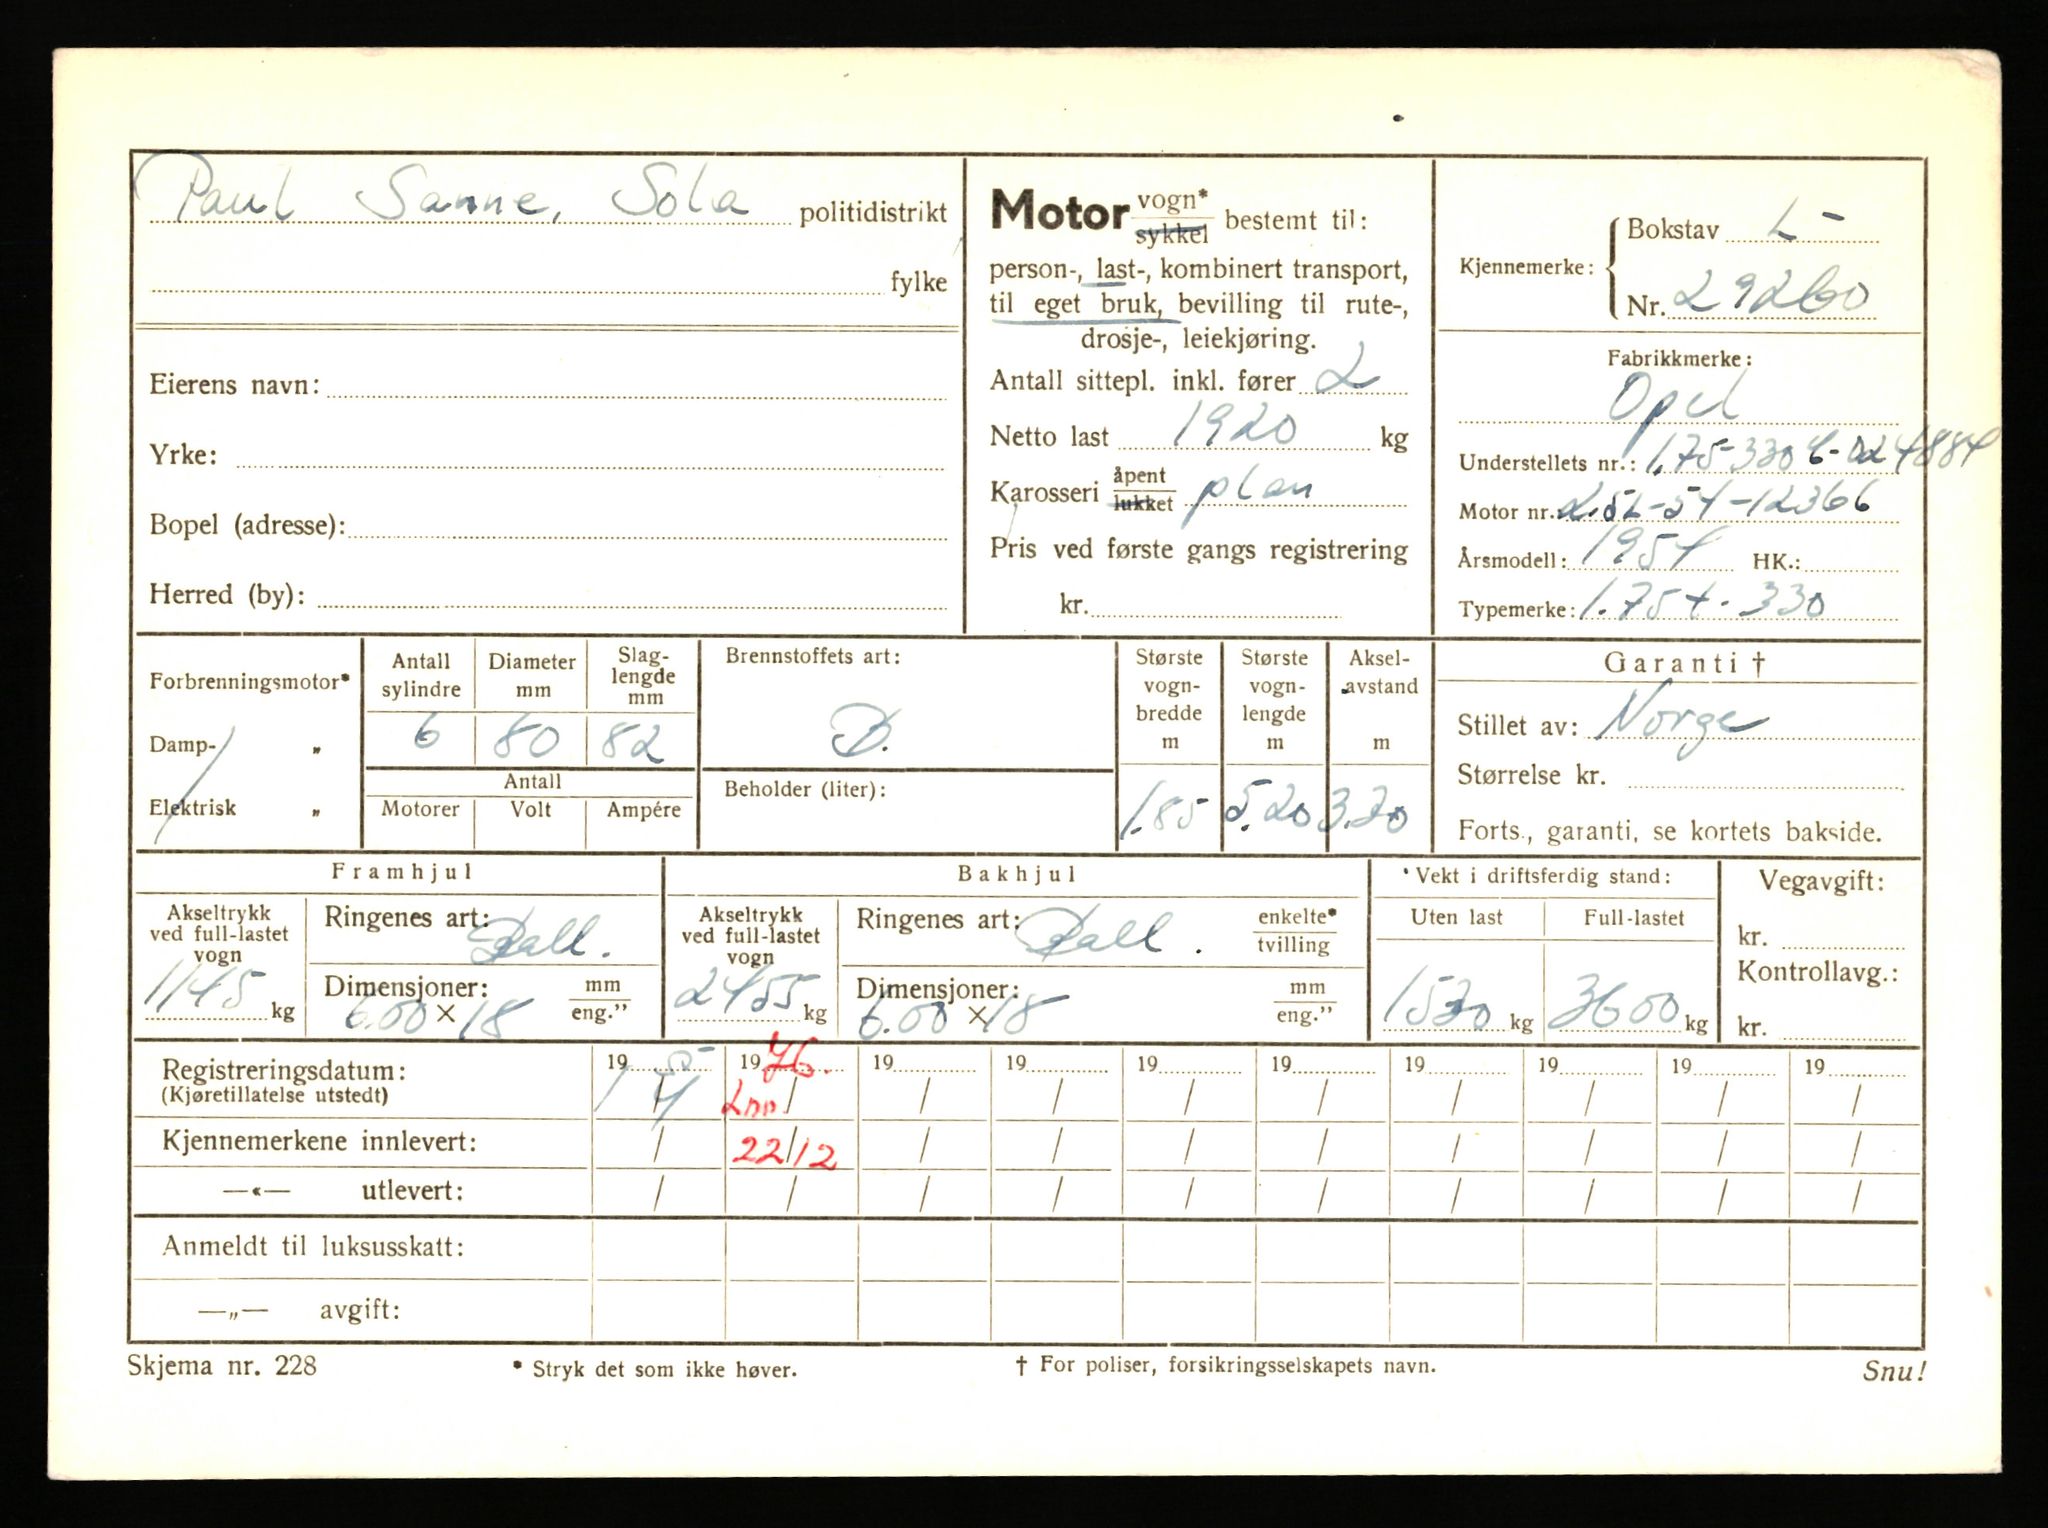 Paul Sanne, Sola politidistrikt
fylke
Eierens navn:
Yrke:
Bopel (adresse):
Herred (by):
Motor vogn* sykkel bestemt til:
person-, last-, kombinert transport,
til eget bruk, bevilling til rute-,
drosje-, leiekjøring.
Antall sittepl. inkl. fører 2
Netto last 1920 kg
Karosseri åpent lukket plan
Pris ved første gangs registrering
kr.
Kjennemerke:
Bokstav L-
Nr. 29260
Fabrikkmerke:
Opel
Understellets nr.:
Motor nr. 2.5L-54-12366
Årsmodell: 1954 HK.:
Typemerke: 1.75 t. 330
Forbrenningsmotor*
Damp- „
Elektrisk „
Antall sylindre
Diameter mm
Slag-lengde mm
6 80 82
Antall
Motorer Volt Ampére
Brennstoffets art:
B.
Beholder (liter):
Største vogn-bredde m
1.85
Største vogn-lengde m
5.20
Aksel-avstand m
3.30
Garanti †
Stillet av: Norge
Størrelse kr.
Forts., garanti, se kortets bakside.
Framhjul
Akseltrykk ved full-lastet vogn
1145 kg
Ringenes art: Ball.
Dimensjoner: mm eng."
6.00 × 18
Bakhjul
Akseltrykk ved full-lastet vogn
2455 kg
Ringenes art: Ball. enkelte* tvilling
Dimensjoner: mm eng."
6.00 × 18
* Vekt i driftsferdig stand:
Uten last Full-lastet
1530 kg 3600 kg
Vegavgift:
kr.
Kontrollavg.:
kr.
Registreringsdatum: 19 55 19 76. 19 19 19 19 19 19 19 19
(Kjøretillatelse utstedt) 1/4 / / / / / / / / /
Kjennemerkene innlevert: / 22/12 / / / / / / / /
—«— utlevert: / / / / / / / / / /
Anmeldt til luksusskatt:
—„— avgift:
Skjema nr. 228
* Stryk det som ikke høver.
† For poliser, forsikringsselskapets navn.
Snu!